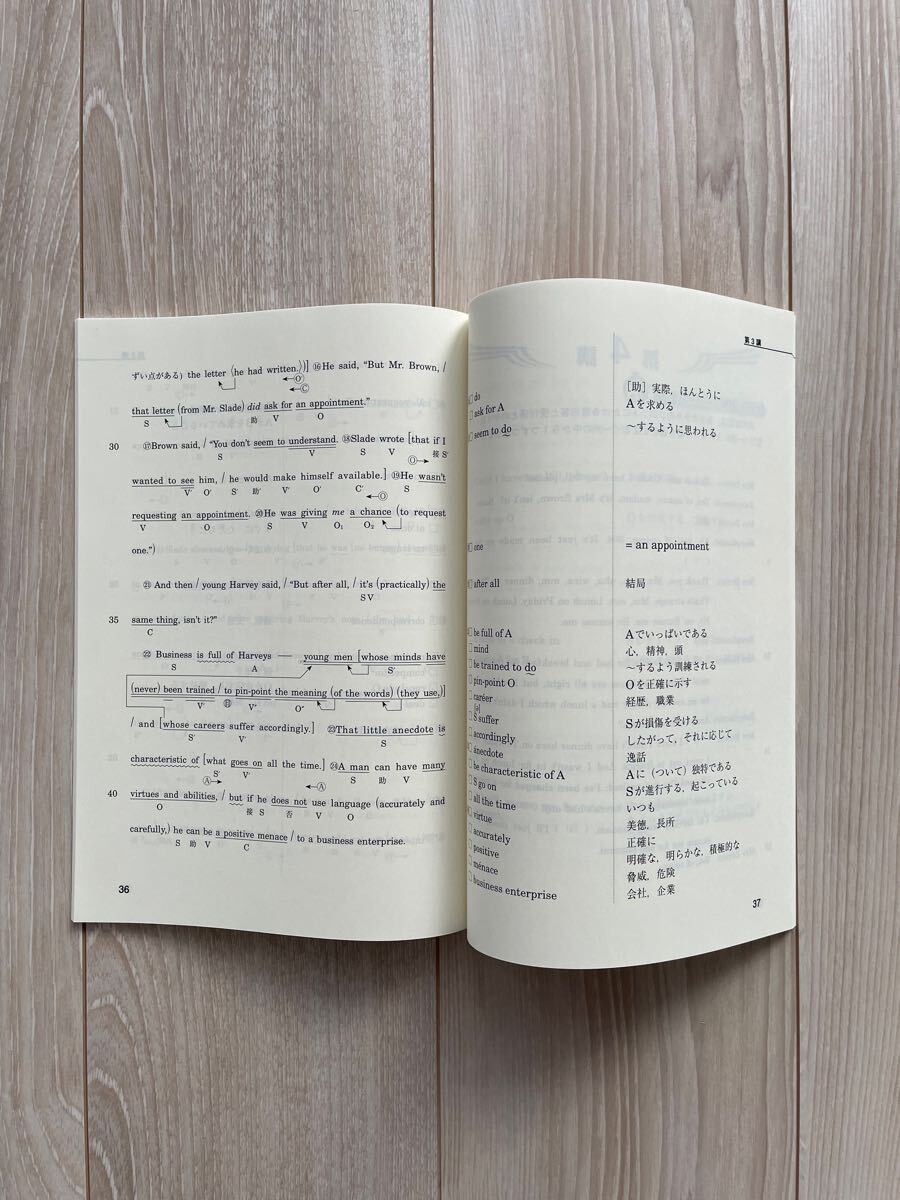 ずい点がある) the letter (he had written.))] ⑯He said, "But Mr. Brown, /
O' C
that letter (from Mr. Slade) did ask for an appointment."
S 助 V O
30 ⑰Brown said, / "You don't seem to understand. ⑱Slade wrote [that if I
S V S V O 接 S'
wanted to see him, / he would make himself available.] ⑲He wasn't
V' O' S' 助' V' O' C' O S
requesting an appointment. ⑳He was giving me a chance (to request
V O S V O₁ O₂
one.")
㉑ And then / young Harvey said, / "But after all, / it's (practically) the
S V
35 same thing, isn't it?"
C
㉒ Business is full of Harveys — young men [whose minds have
S A S'
(never) been trained / to pin-point the meaning (of the words) (they use,)]
V' V" O"
/ and [whose careers suffer accordingly.] ㉓That little anecdote is
S' V' S
characteristic of [what goes on all the time.] ㉔A man can have many
A S' V' A S 助 V
40 virtues and abilities, / but if he does not use language (accurately and
O 接 S 否 V O
carefully,) he can be a positive menace / to a business enterprise.
S 助 V C
36
第3講
do [助] 実際，ほんとうに
ask for A Aを求める
seem to do ～するように思われる
one = an appointment
after all 結局
be full of A Aでいっぱいである
mind 心，精神，頭
be trained to do ～するよう訓練される
pin-point O Oを正確に示す
caréer 経歴，職業
S suffer Sが損傷を受ける
accordingly したがって，それに応じて
anecdote 逸話
be characteristic of A Aに（ついて）独特である
S go on Sが進行する，起こっている
all the time いつも
virtue 美徳，長所
accurately 正確に
positive 明確な，明らかな，積極的な
ménace 脅威，危険
business enterprise 会社，企業
37